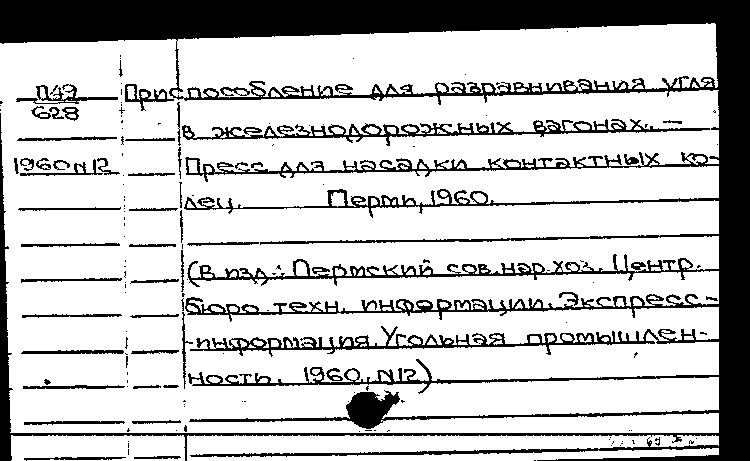 П49 Приспособление для разравнивания угля
628
в железнодорожных вагонах. —
1960 N12 Пресс для насадки контактных ко-
лец. Пермь, 1960.
(В изд.: Пермский сов. нар. хоз. Центр.
бюро техн. информации. Экспресс-
-информация. Угольная промышлен-
ность. 1960, N12)